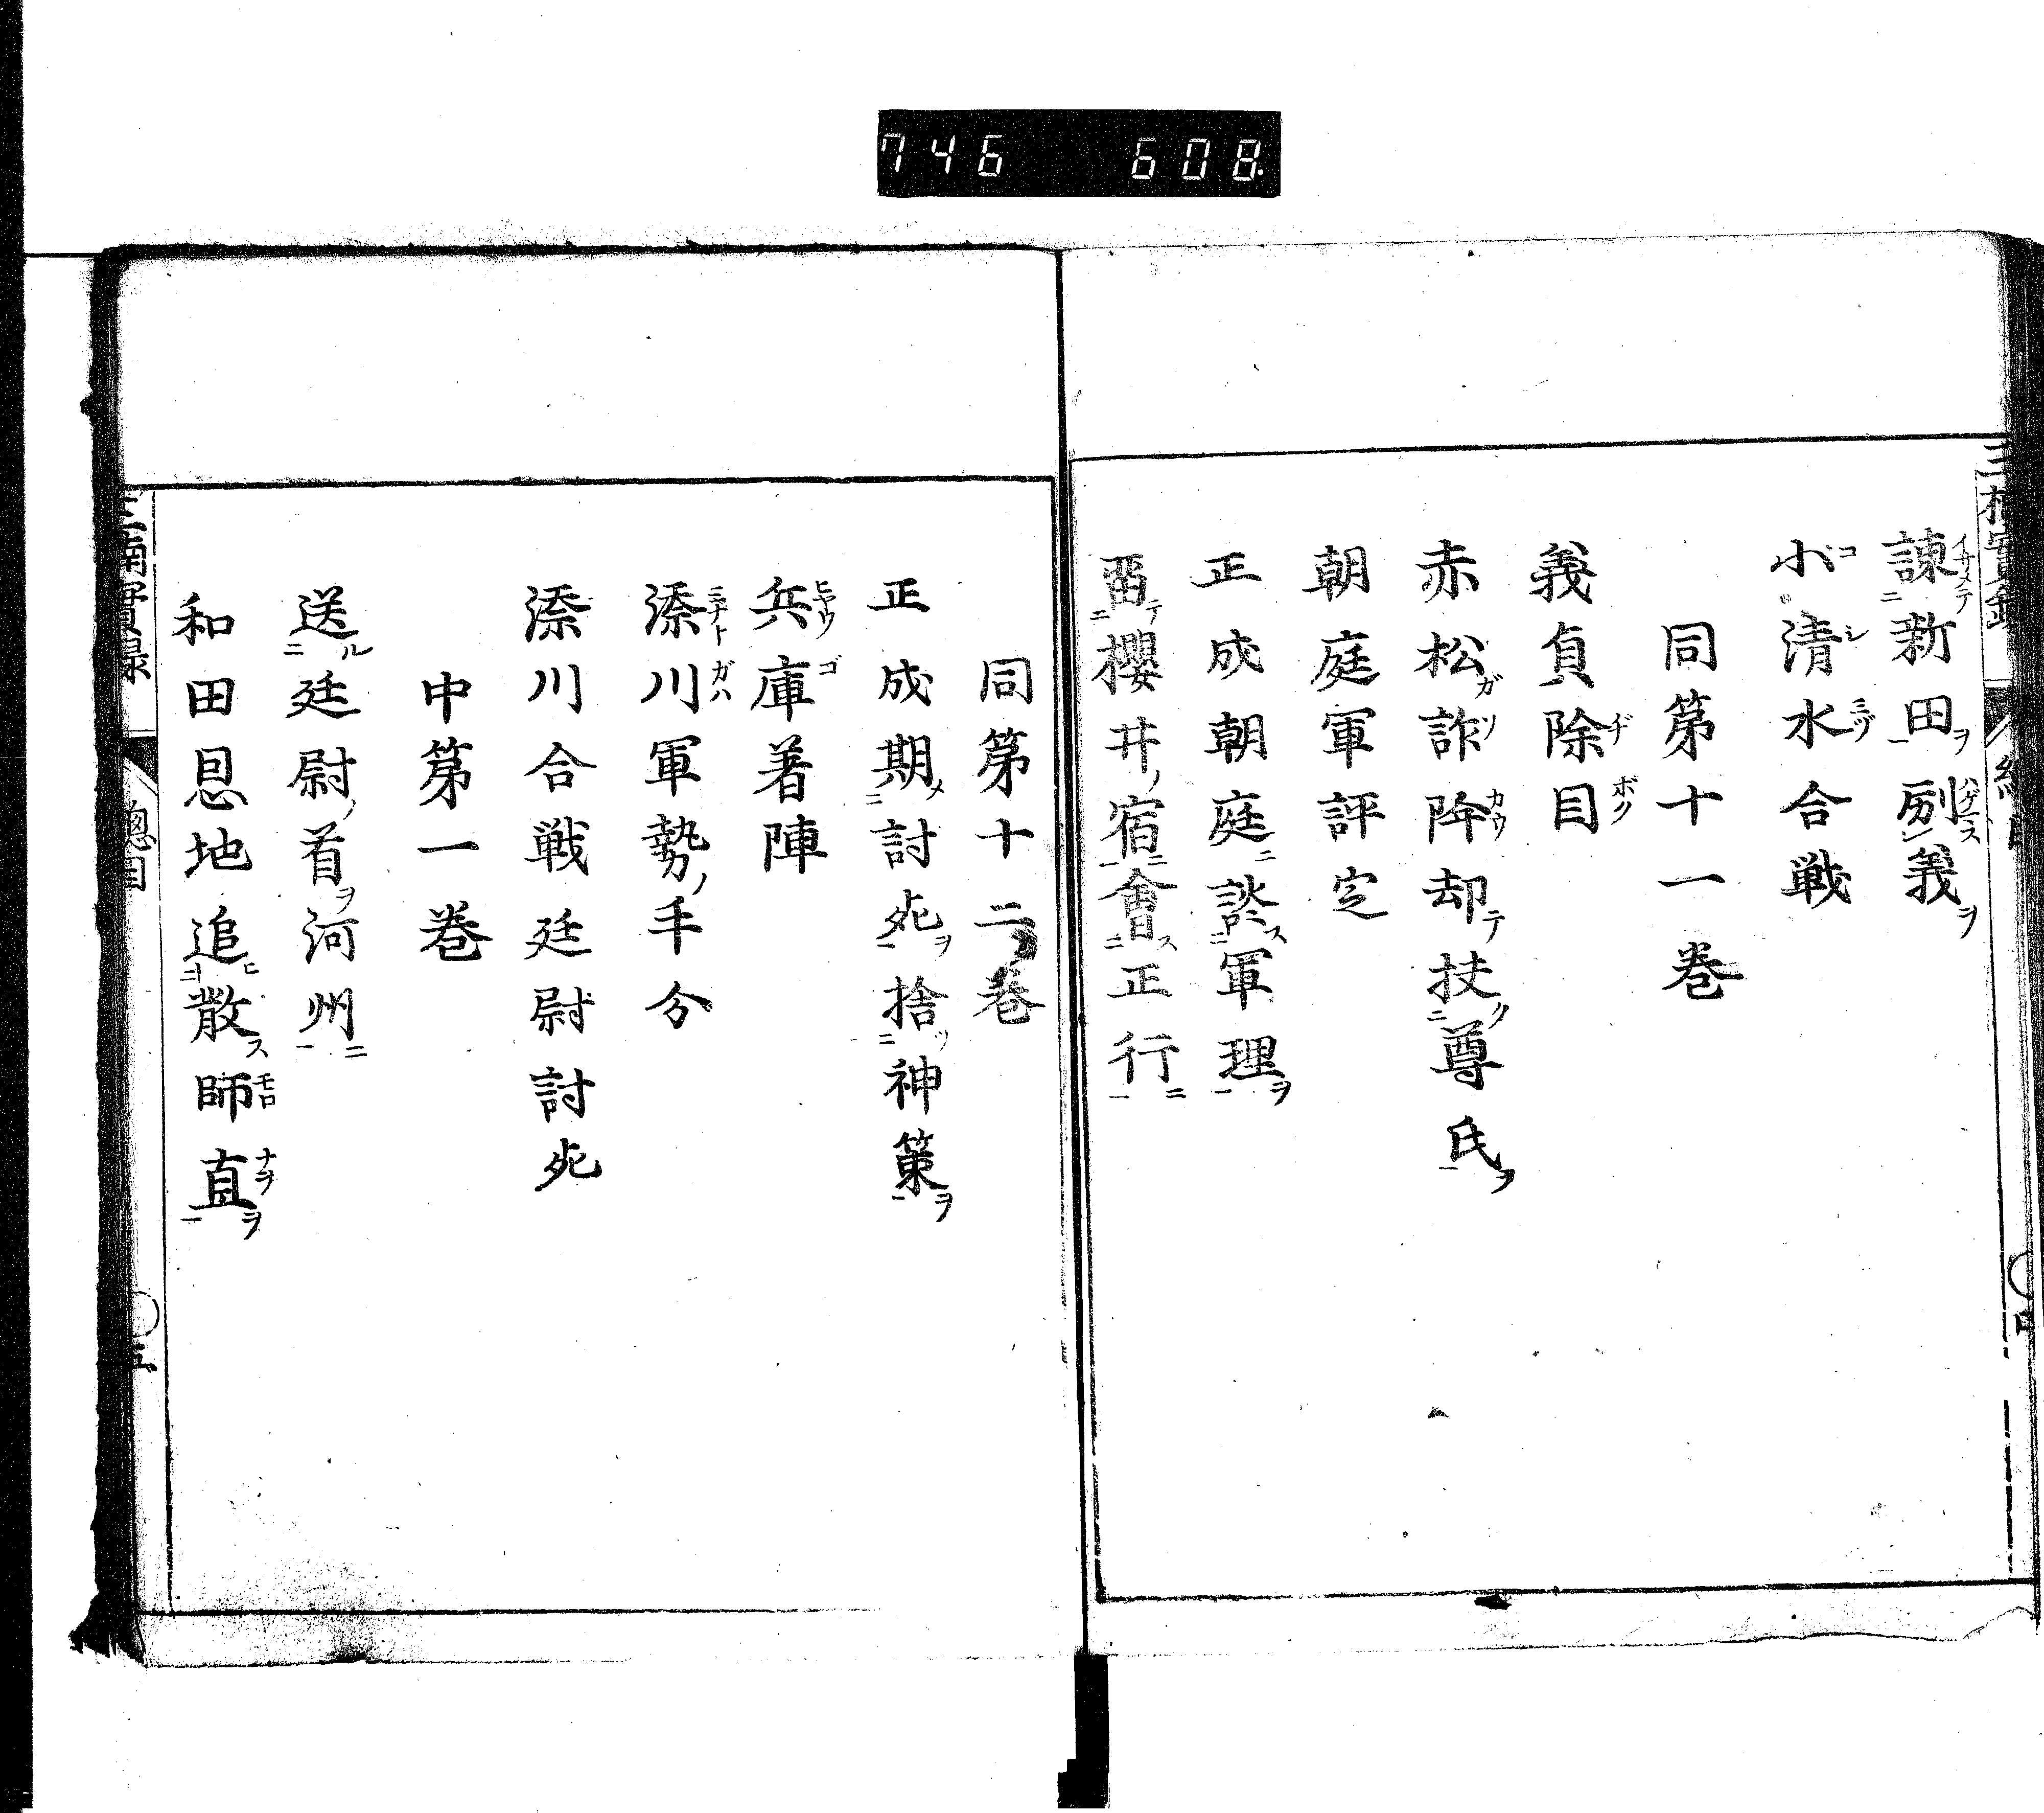 746 608
諫新田勵義
小清水合戦
同第十一巻
義貞除目
赤松詐降却扶尊氏
朝庭軍評定
正成朝庭談軍理
畄櫻井宿會正行
同第十二巻
正成期討死捨神策
兵庫著陣
湊川軍勢手分
湊川合戦廷尉討死
中第一巻
送廷尉首河州
和田恩地追散師直
三楠實録 總目 五